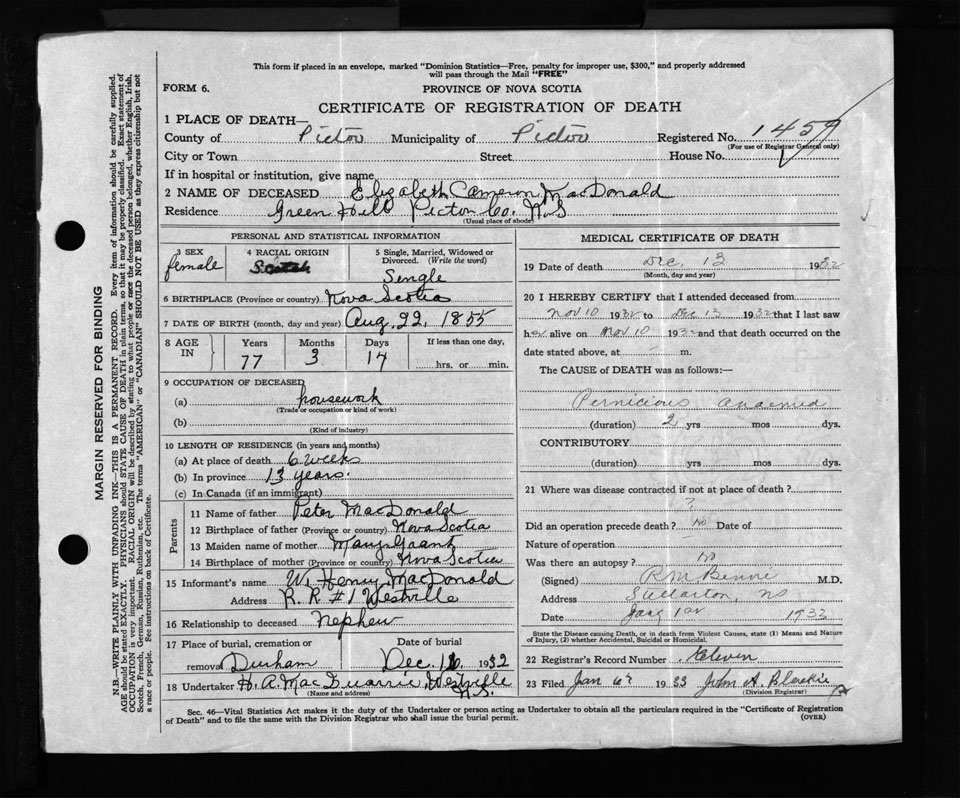 This form if placed in an envelope, marked "Dominion Statistics—Free, penalty for improper use, $300," and properly addressed
will pass through the Mail "FREE"
FORM 6. PROVINCE OF NOVA SCOTIA
CERTIFICATE OF REGISTRATION OF DEATH
1 PLACE OF DEATH—
County of Pictou Municipality of Pictou Registered No. 1459
(For use of Registrar General only)
City or Town Street House No.
If in hospital or institution, give name
2 NAME OF DECEASED Elizabeth Cameron MacDonald
Residence Green Hill Pictou Co. N.S
(Usual place of abode)
PERSONAL AND STATISTICAL INFORMATION
3 SEX 4 RACIAL ORIGIN 5 Single, Married, Widowed or
Divorced. (Write the word)
female Scotch Single
6 BIRTHPLACE (Province or country) Nova Scotia
7 DATE OF BIRTH (month, day and year) Aug. 22, 1855
8 AGE IN Years Months Days If less than one day,
77 3 14 hrs. or min.
9 OCCUPATION OF DECEASED
(a) housework
(Trade or occupation or kind of work)
(b)
(Kind of industry)
10 LENGTH OF RESIDENCE (in years and months)
(a) At place of death 6 weeks
(b) In province 13 years.
(c) In Canada (if an immigrant)
Parents
11 Name of father Peter MacDonald
12 Birthplace of father (Province or country) Nova Scotia
13 Maiden name of mother Mary Graant
14 Birthplace of mother (Province or country) Nova Scotia
15 Informant's name W. Henry MacDonald
Address R. R #1 Westville
16 Relationship to deceased nephew
17 Place of burial, cremation or Date of burial
removal Durham Dec. 16 1932
18 Undertaker H. A. MacQuarrie Westville
(Name and address) N.S.
MEDICAL CERTIFICATE OF DEATH
19 Date of death Dec. 13 1932
(Month, day and year)
20 I HEREBY CERTIFY that I attended deceased from
Nov 10 1932 to Dec 13 1932 that I last saw
her alive on Nov 10 1932 and that death occurred on the
date stated above, at m.
The CAUSE of DEATH was as follows:—
Pernicious anaemia
(duration) 2 yrs mos dys.
CONTRIBUTORY
(duration) yrs mos dys.
21 Where was disease contracted if not at place of death?
?
Did an operation precede death? No Date of
Nature of operation
Was there an autopsy? no
(Signed) R M Benvie M.D.
Address Stellarton, NS
Date 1932
State the Disease causing Death, or in death from Violent Causes, state (1) Means and Nature
of Injury, (2) whether Accidental, Suicidal or Homicidal.
22 Registrar's Record Number Eleven
23 Filed Jan 1933 John A. Blaikie
(Division Registrar)
Sec. 46—Vital Statistics Act makes it the duty of the Undertaker or person acting as Undertaker to obtain all the particulars required in the "Certificate of Registration
of Death" and to file the same with the Division Registrar who shall issue the burial permit. (OVER)
MARGIN RESERVED FOR BINDING
N.B.—WRITE PLAINLY WITH UNFADING INK—THIS IS A PERMANENT RECORD. Every item of information should be carefully supplied.
AGE should be stated EXACTLY. PHYSICIANS should STATE CAUSE OF DEATH in plain terms, so that it may be properly classified. Exact statement of
OCCUPATION is very important. RACIAL ORIGIN will be described by stating to what people or race the deceased person belonged, whether English, Irish,
Scotch, French, German, Russian, Ruthenian, etc. The terms "AMERICAN" or "CANADIAN" SHOULD NOT BE USED as they express citizenship but not
a race or people. See instructions on back of Certificate.